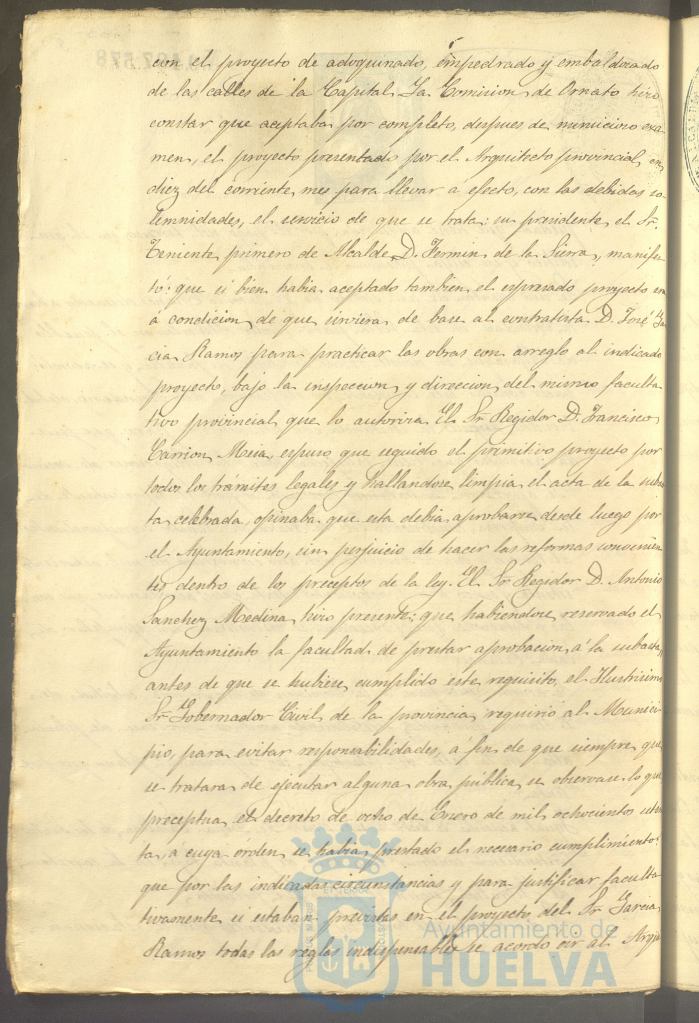 con el proyecto de adoquinado, empedrado y embaldosado
de las calles de la Capital. La Comision de Ornato hizo
constar que aceptaba por completo, despues de minucioso exa-
men, el proyecto presentado por el Arquitecto provincial en
diez del corriente mes para llevar a efecto, con las debidas so-
lemnidades, el servicio de que se trata: su presidente el Sr.
Teniente primero de Alcalde, D. Fermin de la Sierra, manifes-
tó: que si bien habia aceptado tambien el espresado proyecto era
á condicion de que sirviera de base al contratista D. José Gar-
cia Ramos para practicar las obras con arreglo al indicado
proyecto, bajo la inspeccion y direccion del mismo faculta-
tivo provincial que lo autoriza. El Sr. Regidor D. Francisco
Carrion Mesa, espuso que seguido el primitivo proyecto por
todos los trámites legales y hallandose limpia el acta de la subas-
ta celebrada, opinaba que esta debia aprobarse desde luego por
el Ayuntamiento, sin perjuicio de hacer las reformas convenien-
tes dentro de los preceptos de la ley. El Sr. Regidor D. Antonio
Sanchez Medina hizo presente: que habiendose reservado el
Ayuntamiento la facultad de prestar aprobacion á la subasta,
antes de que se hubiese cumplido este requisito, el Ilustrisimo
Sr. Gobernador Civil de la provincia requirió al Munici-
pio, para evitar responsabilidades, á fin de que siempre que
se tratara de ejecutar alguna obra pública, se observase lo que
preceptua el decreto de ocho de Enero de mil ochocientos seten-
ta, a cuya orden se habia prestado el necesario cumplimiento:
que por las indicadas circunstancias y para justificar faculta-
tivamente si estaban previstas en el proyecto del Sr. Garcia
Ramos todas las reglas indispensables se acordo oir al Arqui-
Ayuntamiento de
HUELVA